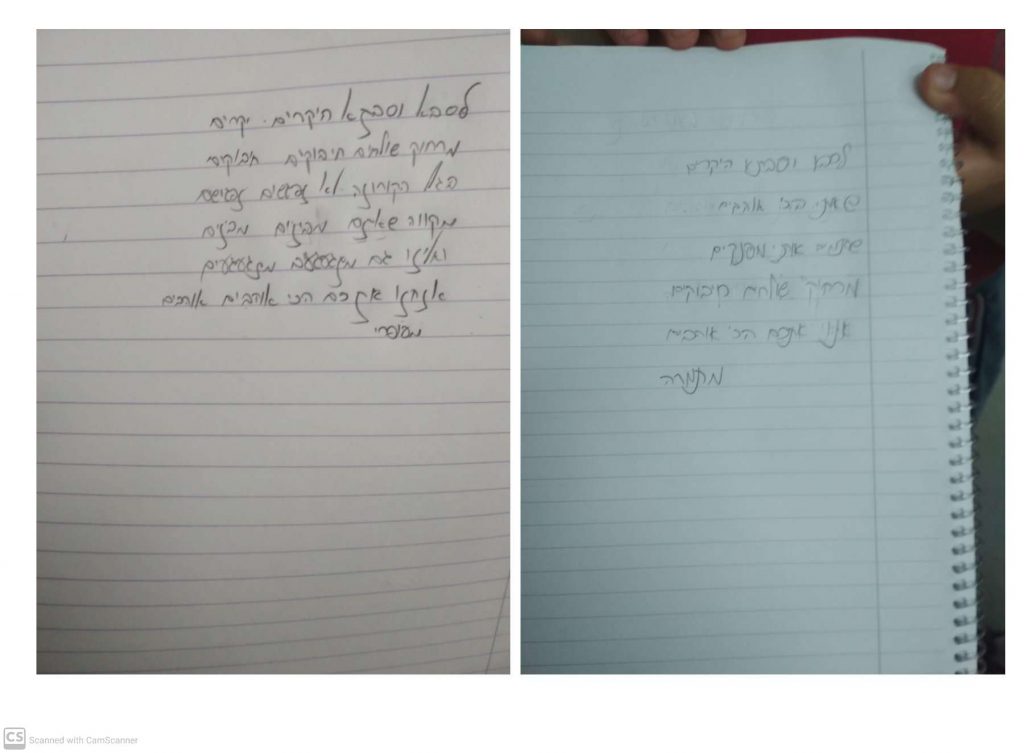 לסבא וסבתא היקרים. יקרים
מרחוק שולחים חיבוקים חיבוקים
בגלל הקורונה לא נפגשים נפגשים
מקווה שאתם מבינים מבינים
ואנחנו גם מתגעגעים מתגעגעים
אנחנו אתכם הכי אוהבים אוהבים
לסבא וסבתא היקרים
שאני הכי אוהבים
שתמיד אותי מפנקים
מרחוק שולחים חיבוקים
אני אתכם הכי אוהבים
CS Scanned with CamScanner